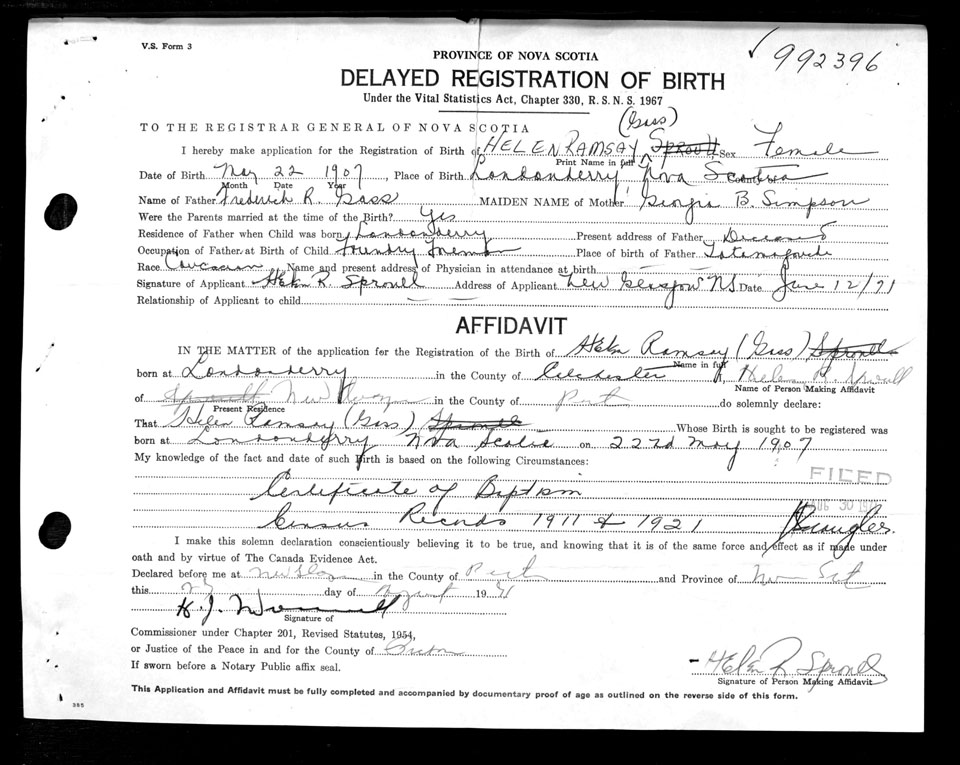 V.S. Form 3
992396
PROVINCE OF NOVA SCOTIA
DELAYED REGISTRATION OF BIRTH
Under the Vital Statistics Act, Chapter 330, R. S. N. S. 1967
(Gass)
TO THE REGISTRAR GENERAL OF NOVA SCOTIA
I hereby make application for the Registration of Birth of HELEN RAMSAY Sproull Sex Female
Print Name in full
Date of Birth May 22 1907, Place of Birth Londonderry, Nova Scotia
Month Date Year Counties
Name of Father Frederick R. Gass MAIDEN NAME of Mother Georgia B. Simpson
Were the Parents married at the time of the Birth? Yes
Residence of Father when Child was born Londonderry Present address of Father Deceased
Occupation of Father at Birth of Child foundry foreman Place of birth of Father Tatamagouche
Race Caucasian Name and present address of Physician in attendance at birth
Signature of Applicant Helen R. Sproull Address of Applicant New Glasgow NS. Date June 12/71
Relationship of Applicant to child
AFFIDAVIT
IN THE MATTER of the application for the Registration of the Birth of Helen Ramsay (Gass) Sproull
Name in full
born at Londonderry in the County of Colchester, Helen R. Sproull
Name of Person Making Affidavit
of Sproull New Glasgow in the County of Pictou do solemnly declare:
Present Residence
That Helen Ramsay (Gass) Sproull Whose Birth is sought to be registered was
born at Londonderry Nova Scotia on 22nd May 1907
My knowledge of the fact and date of such Birth is based on the following Circumstances:
FILED
Certificate of Baptism
AUG 30 19
Census Records 1911 & 1921
I make this solemn declaration conscientiously believing it to be true, and knowing that it is of the same force and effect as if made under
oath and by virtue of The Canada Evidence Act.
Declared before me at New Glasgow in the County of Pictou and Province of Nova Scotia
this day of August 1971
Signature of
Commissioner under Chapter 201, Revised Statutes, 1954,
or Justice of the Peace in and for the County of Pictou
If sworn before a Notary Public affix seal.
Helen R Sproull
Signature of Person Making Affidavit
This Application and Affidavit must be fully completed and accompanied by documentary proof of age as outlined on the reverse side of this form.
385